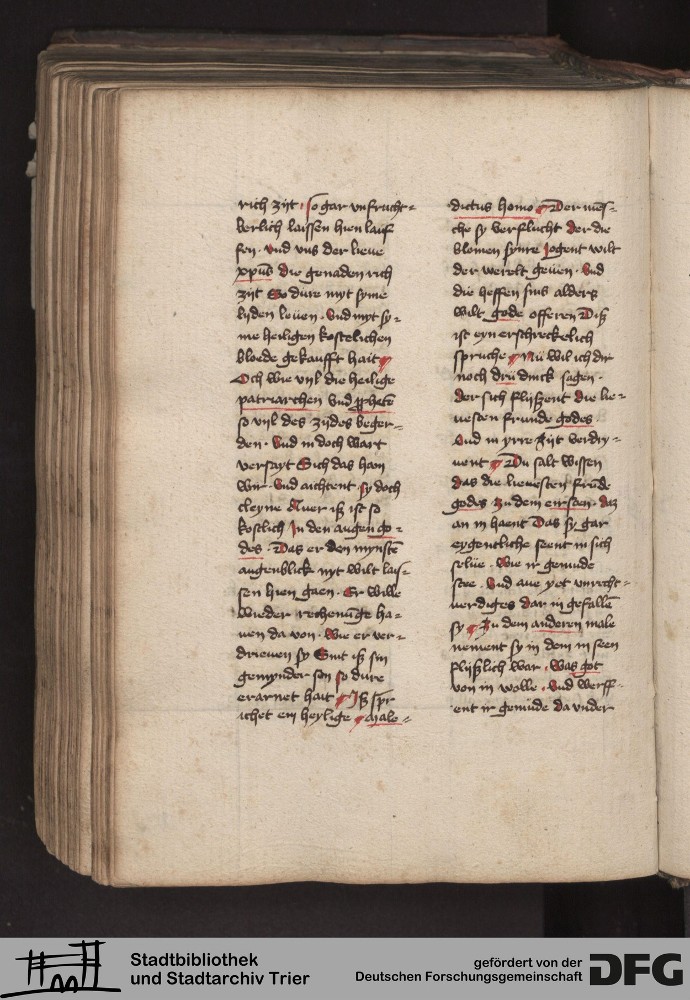 rich zijt · so gar vnfrucht=
berlich laissen hien lauf
fen · vnd vns der lieue
xpūs die genaden rich
zijt So düre myt syme
lijden leüen · Vnd myt sy=
me heiligen kostelichen
bloede gekaufft hait
Och wie vijl die heilige
patriarchen vnd ꝓphetē
so vijl des zijdes beger=
den · Vnd in doch wart
versayt Sich das hain
wir · Vnd aichtent sy doch
cleyne Auer iß ist so
kostlich Jn den augen go=
des · Das er den mynstē
augenblick nyt wilt lais=
sen hien gaen · Er wille
wieder rechenūge ha=
uen da von · Wie er ver=
drieuen sy Sint iß sin
gemynder son so dure
erarnet hait Jß spr
ichet ein heylige Male=
dictus homo Der mēs=
che sy verflucht der die
blomen synre jogent wilt
der werelt geuen · Vnd
die heffen sins alders
wilt gode offeren Diß
ist eyn erschreckelich
spruche Nü wil ich dir
noch drü dinck sagen ·
der sich flijßent die lie=
uesten frunde godes
Vnd in yrre zijt verdry=
uent Du salt wissen
das die lieuesten frūde
godes zu dem eirsten · daz
an in haent Das sy gar
eygentliche seent in sich
selüe · Wie ir gemude
stee · Vnd aue yet vnrecht=
uerdiges dar in gefallē
sy Zu dem anderen male
nement sy in dem in seen
flijßlich war · Was got
von in wolle · Vnd werff=
ent ir gemude da vnder
Stadtbibliothek
und Stadtarchiv Trier
gefördert von der
Deutschen Forschungsgemeinschaft
DFG